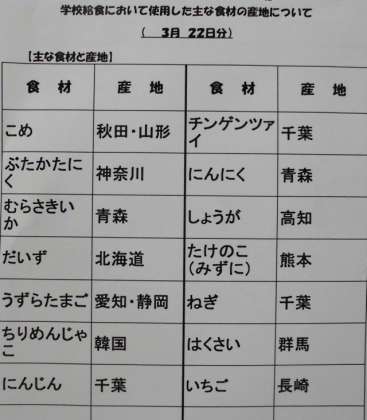 学校給食において使用した主な食材の産地について
（　3月　22日分）
【主な食材と産地】
食　材　産　地　食　材　産　地
こめ　秋田・山形　チンゲンツァイ　千葉
ぶたかたにく　神奈川　にんにく　青森
むらさきいか　青森　しょうが　高知
だいず　北海道　たけのこ（みずに）　熊本
うずらたまご　愛知・静岡　ねぎ　千葉
ちりめんじゃこ　韓国　はくさい　群馬
にんじん　千葉　いちご　長崎